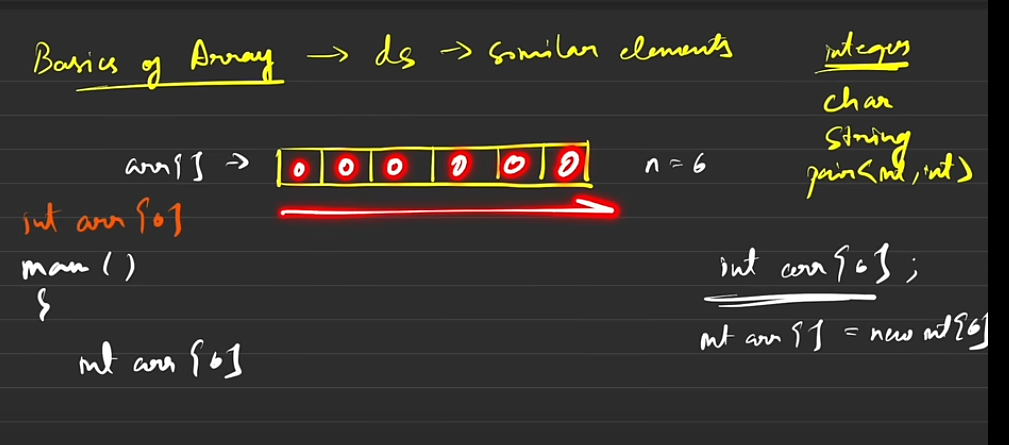 Basics of Array → ds → similar elements
integers
char
string
pair<int, int>
arr[] →
0 0 0 0 0 0
n = 6
int arr[6]
main ()
{
int arr[6]
int arr[6];
int arr[] = new int[6]